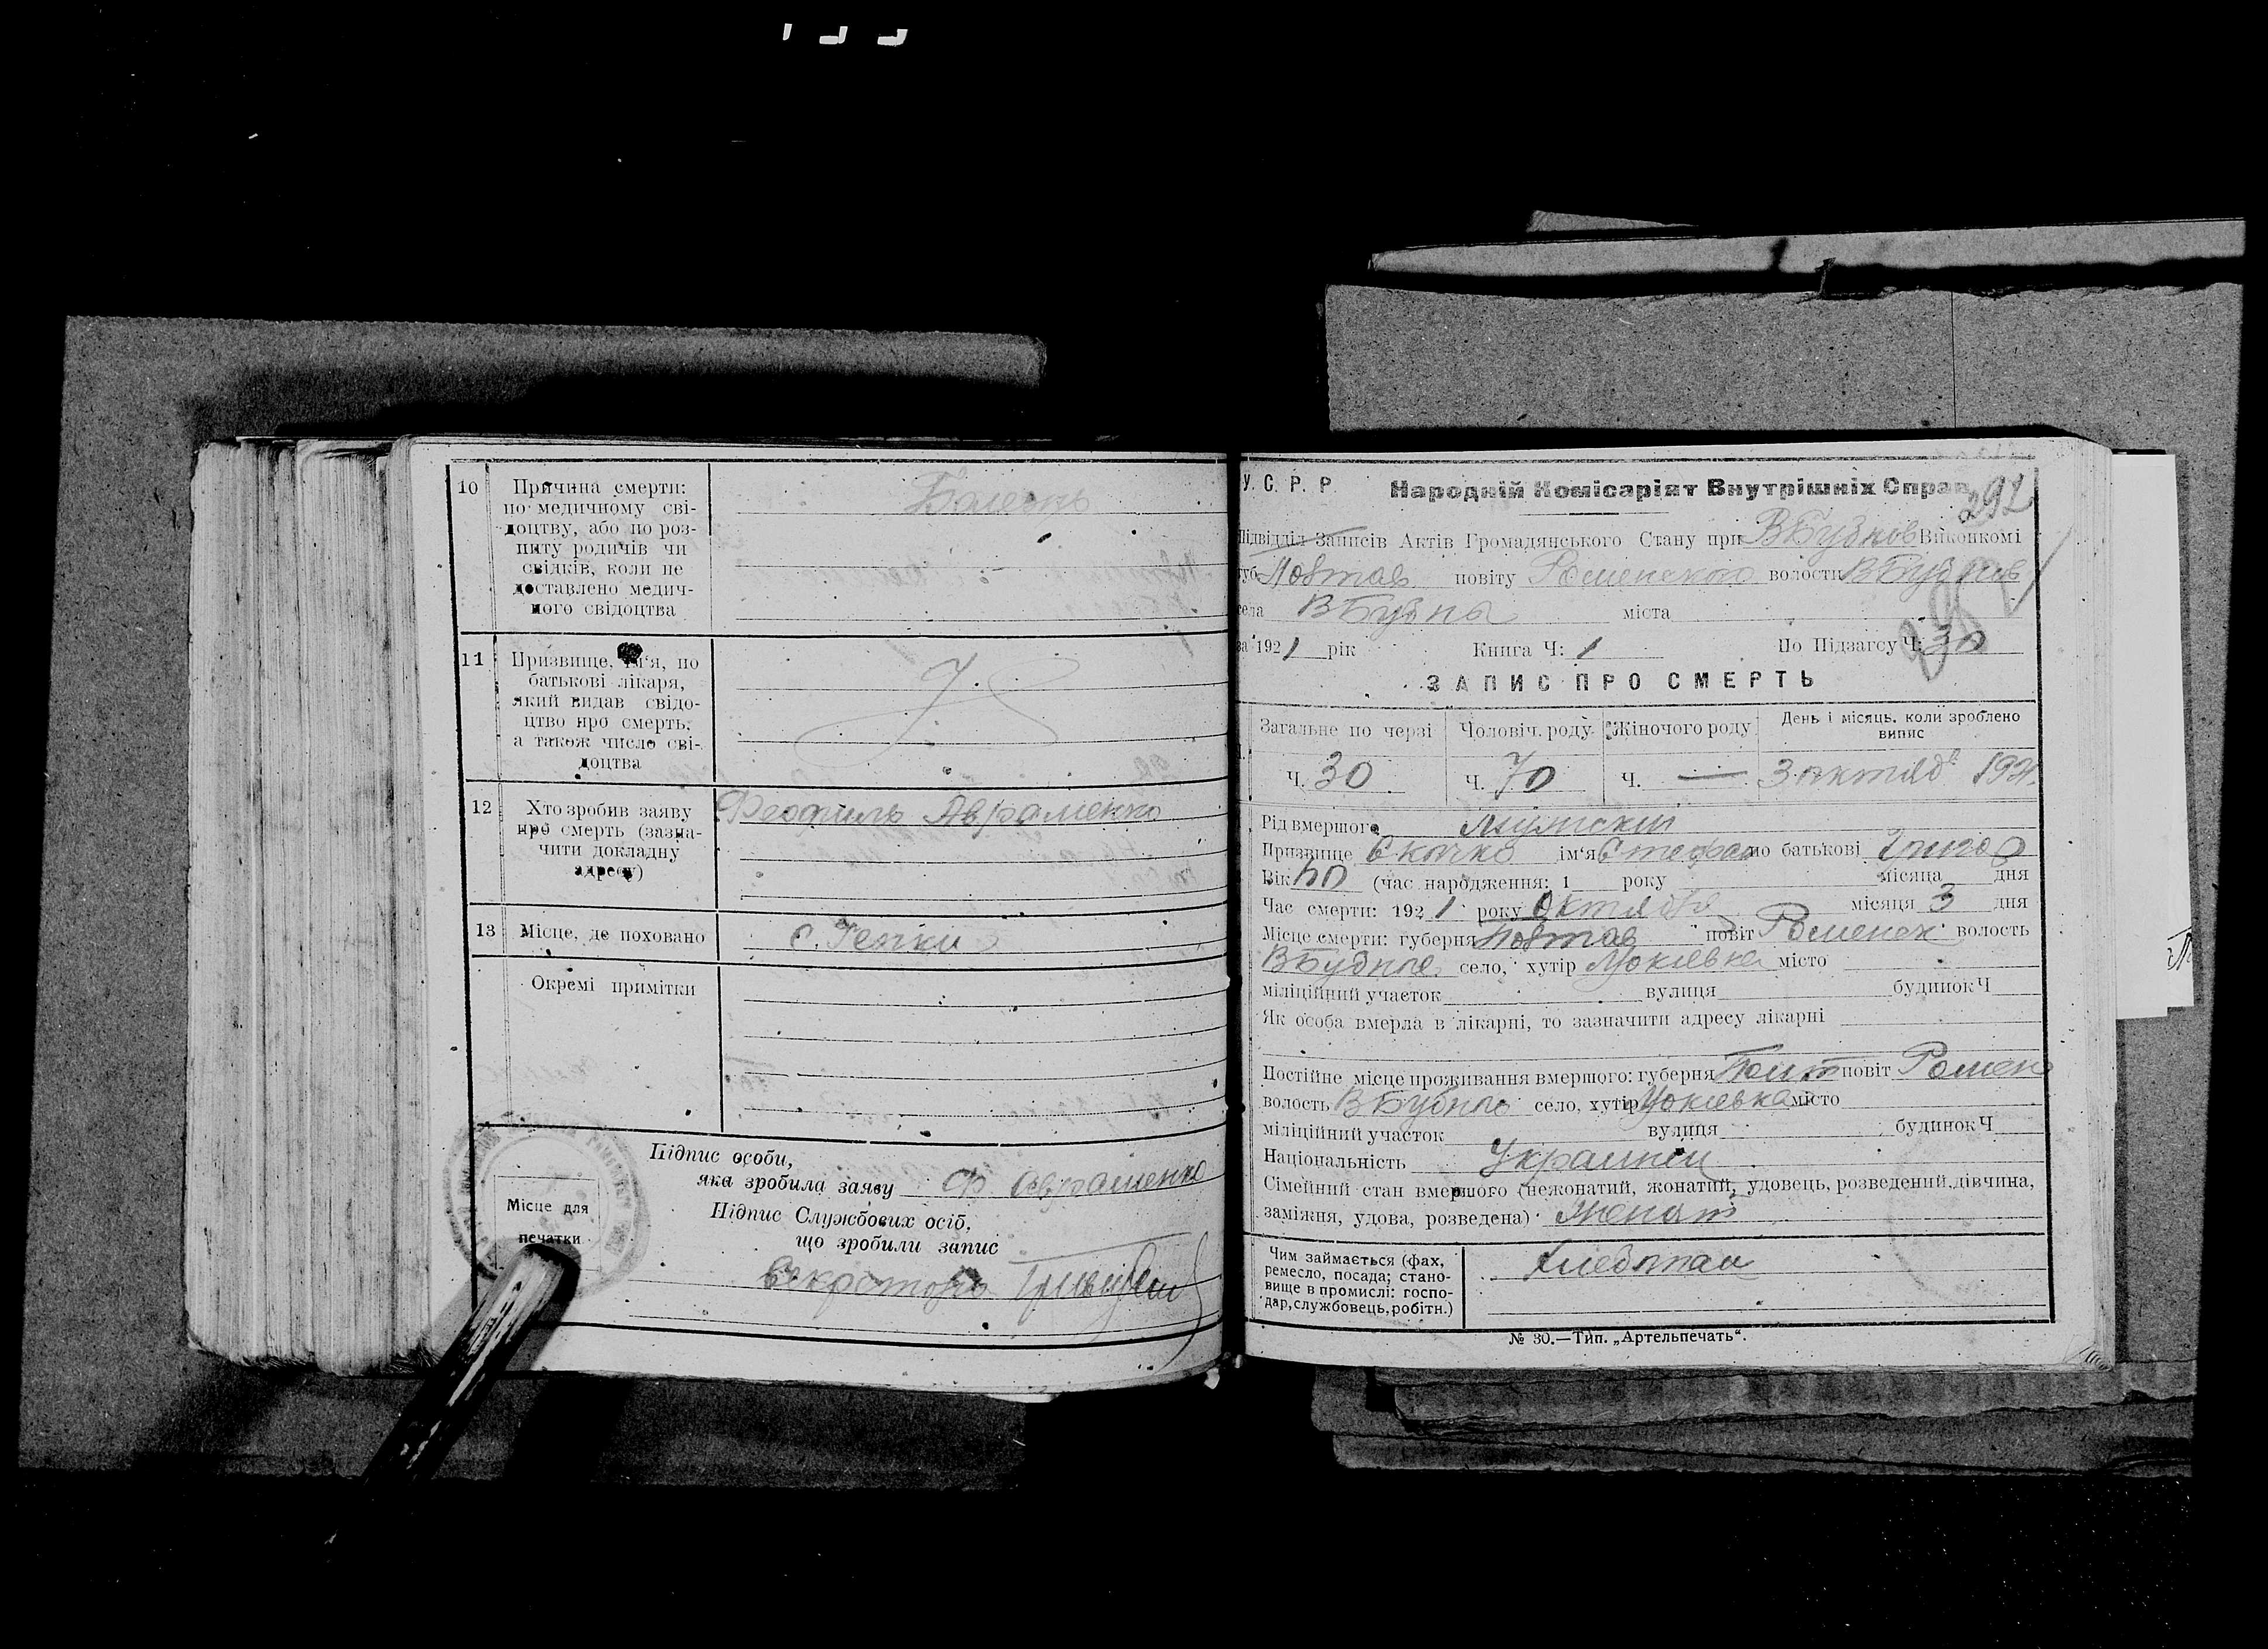 10 Причина смерти: Болезнь
по медичному сві-
доцтву, або по роз-
питу родичів чи
свідків, коли не
доставлено медич-
ного свідоцтва
11 Призвище, ім'я, по
батькові лікаря,
який видав свідо-
цтво про смерть,
а також число сві-
доцтва
12 Хто зробив заяву Феофиль Авраменко
про смерть (зазна-
чити докладну
адресу)
13 Місце, де поховано с. Гепки
Окремі примітки
Підпис особи,
яка зробила заяву Ф Авраменко
Підпис Службових осіб,
що зробили запис
Місце для
печатки
Секретарь
У. С. Р. Р Народній Комісаріят Внутрішніх Справ 292
Підвідділ Записів Актів Громадянського Стану при ВБубнов Виконкомі
губ. Полтав повіту Роменского волости ВБубнов
села ВБубны міста
за 1921 рік Книга Ч: 1 По Підзагсу Ч: 30
ЗАПИС ПРО СМЕРТЬ
Загальне по черзі Чоловіч. роду Жіночого роду День і місяць, коли зроблено
випис
Ч. 30 Ч. 70 Ч. — 3 октяб 1921
Рід вмершого Мужский
Призвище Скочко ім'я Стефан по батькові Григор
Вік 50 (час народження: 1 року місяца дня
Час смерти: 1921 року Октября місяця 3 дня
Місце смерти: губерня Полтав повіт Роменск волость
ВБубны село, хутір місто
міліційний участок вулиця будинок Ч
Як особа вмерла в лікарні, то зазначити адресу лікарні
Постійне місце проживання вмершого: губерня Полт повіт Ромен
волость ВБубны село, хутір місто
міліційний участок вулиця будинок Ч
Національність Украинец
Сімейний стан вмершого (нежонатий, жонатий, удовець, розведений, дівчина,
заміжня, удова, розведена) Женат
Чим займається (фах, Хлебопаш
ремесло, посада; стано-
вище в промислі: госпо-
дар, службовець, робітн.)
№ 30.—Тип. „Артельпечать“.